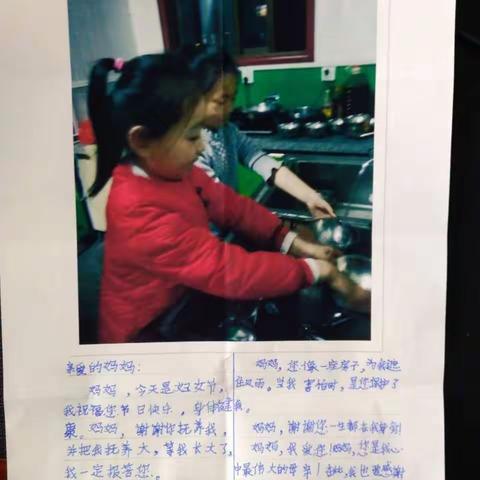 亲爱的妈妈:
妈妈,今天是妇女节,
我祝福您节日快乐,身体健
康。妈妈,谢谢你抚养我,
并把我抚养大,等我长大了,
我一定报答您。
妈妈,您像一座房子,为我遮
住风雨。当我害怕时,是您保护了
我。
妈妈,谢谢您一生都在我身
妈妈,我爱您!妈妈,您是我心
中最伟大的母亲!在此,我也要感谢